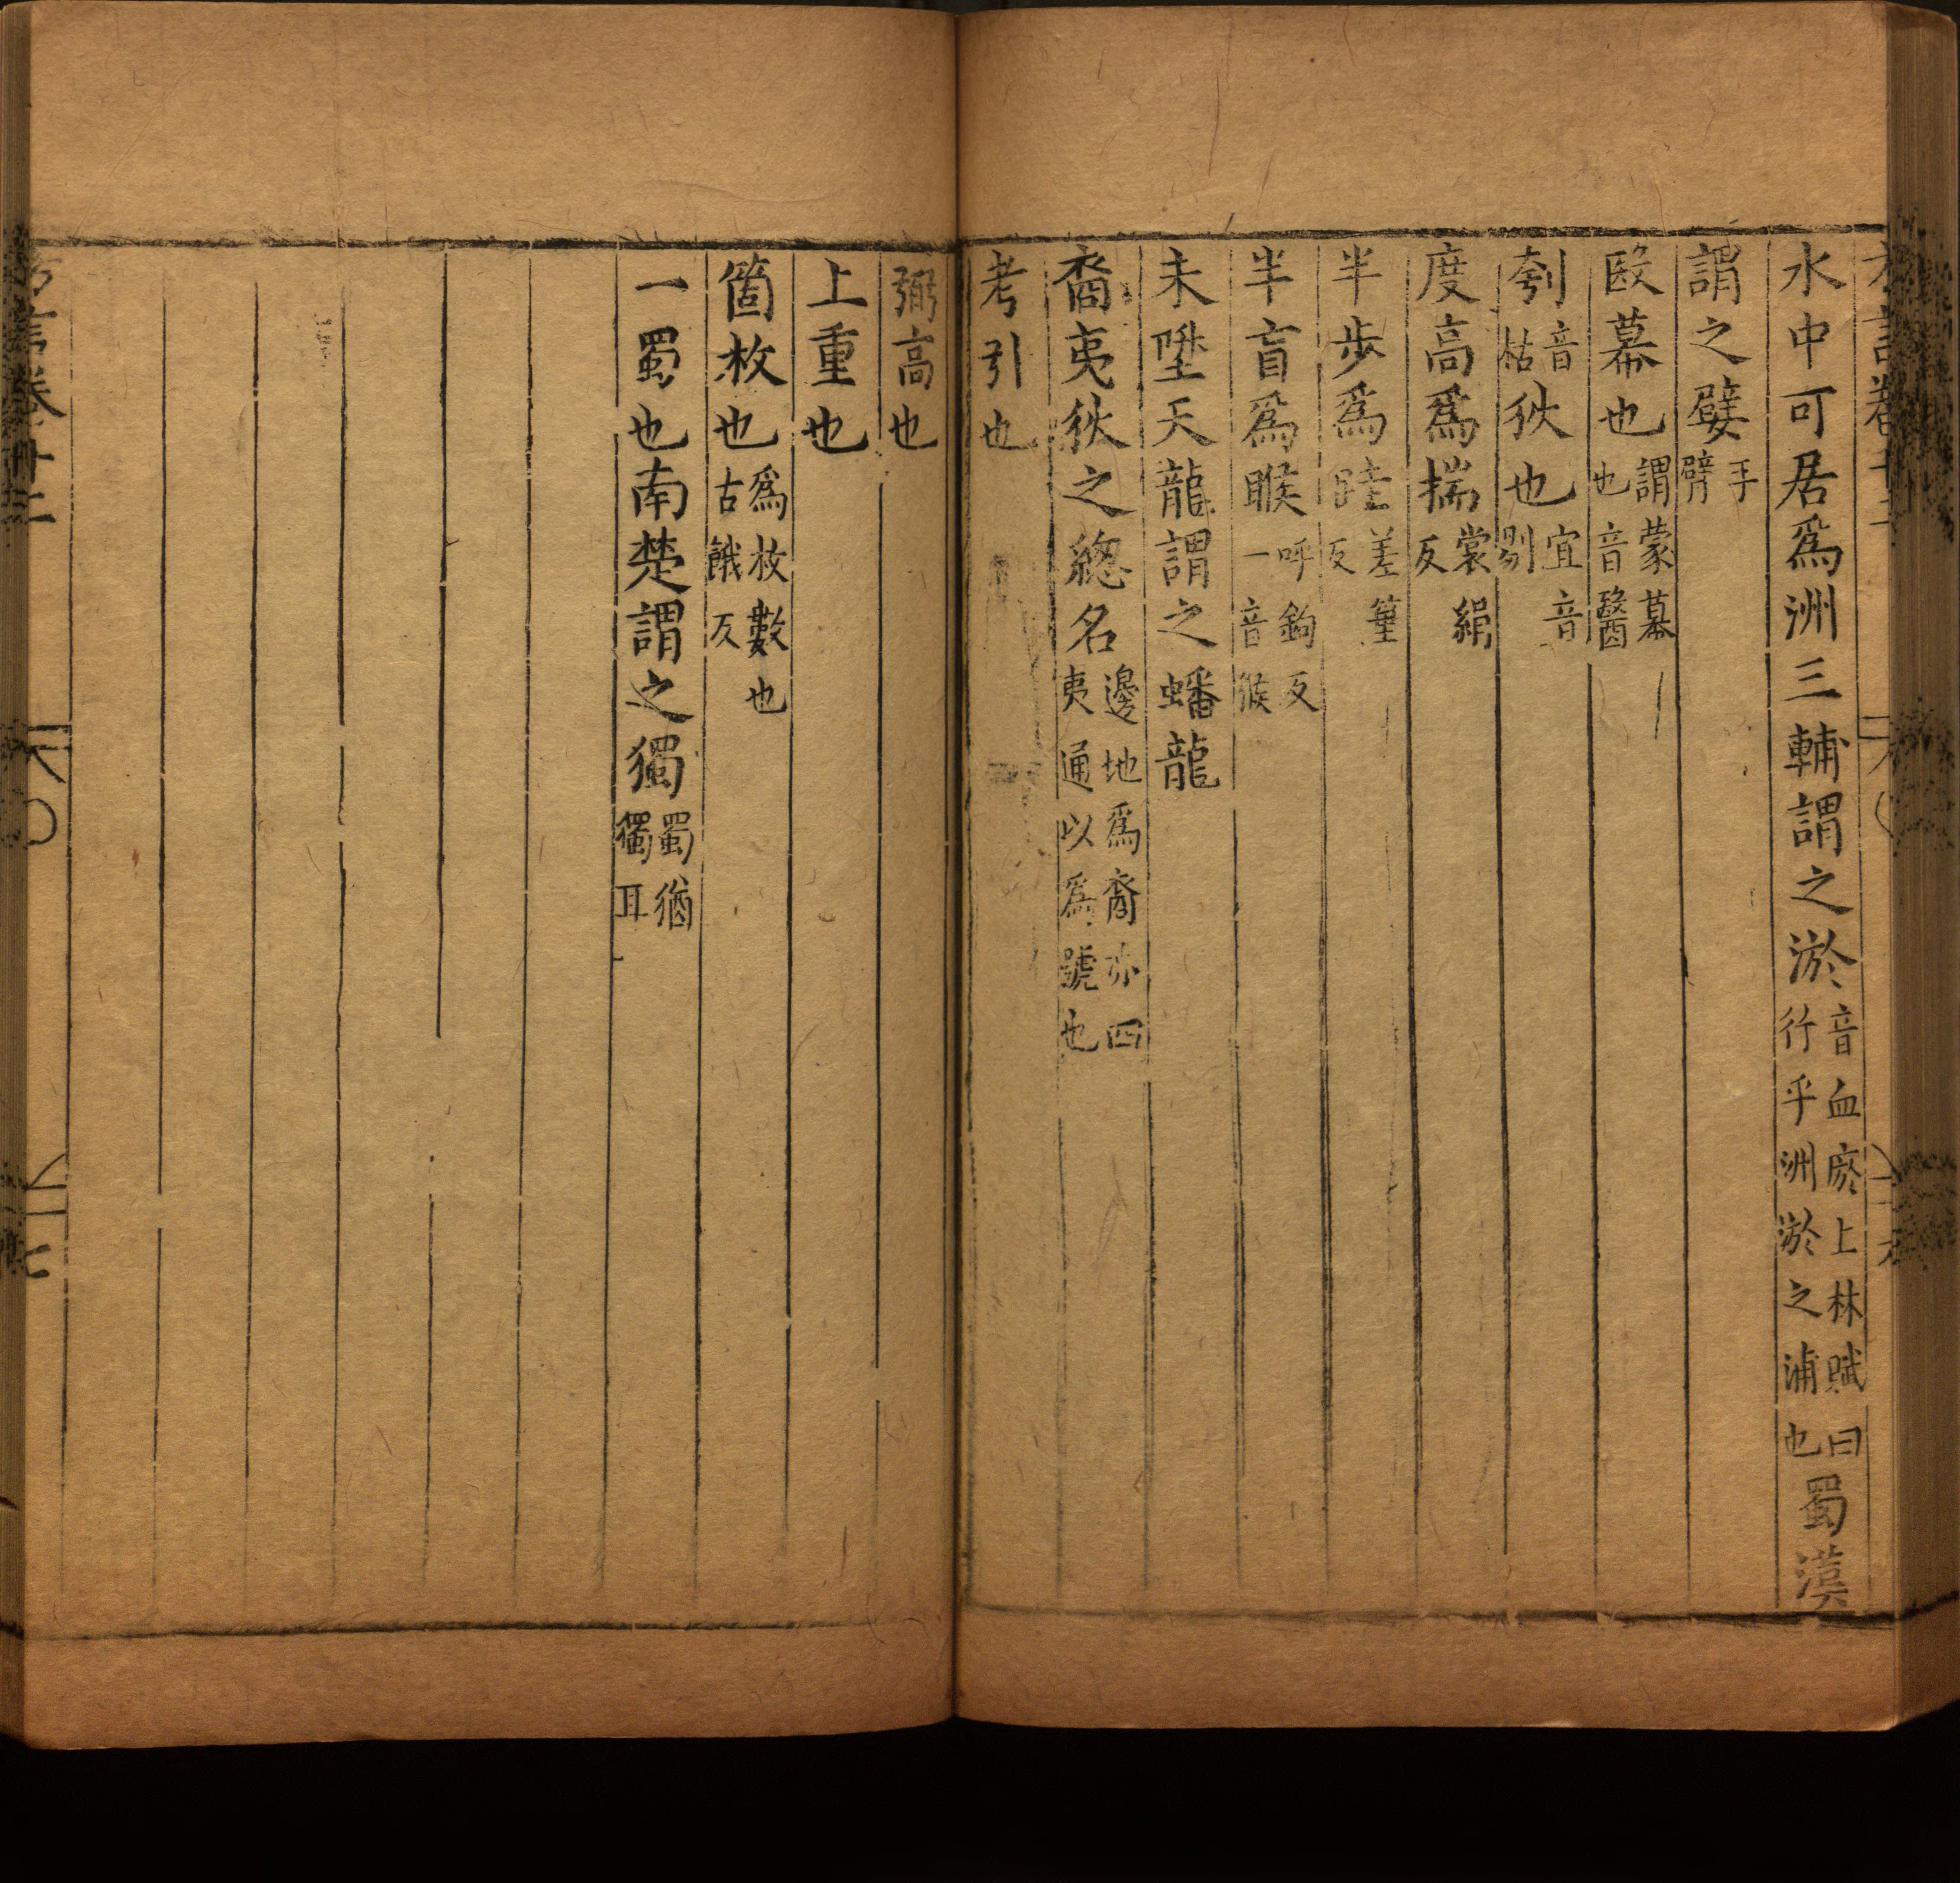 水中可居爲洲三輔謂之淤音血瘀上林賦曰行乎洲淤之浦也蜀漢
謂之嬖手臂
毆幕也謂蒙幕也音醫
刳音枯狄也宜音剔
度高爲揣裳絹反
半步爲跬差箠反
半盲爲睺呼鉤反一音猴
未陞天龍謂之蟠龍
裔夷狄之總名邊地爲裔亦四夷通以爲號也
考引也
弼高也
上重也
箇枚也爲枚數也古餓反
一蜀也南楚謂之獨蜀猶獨耳
方言卷十二
七